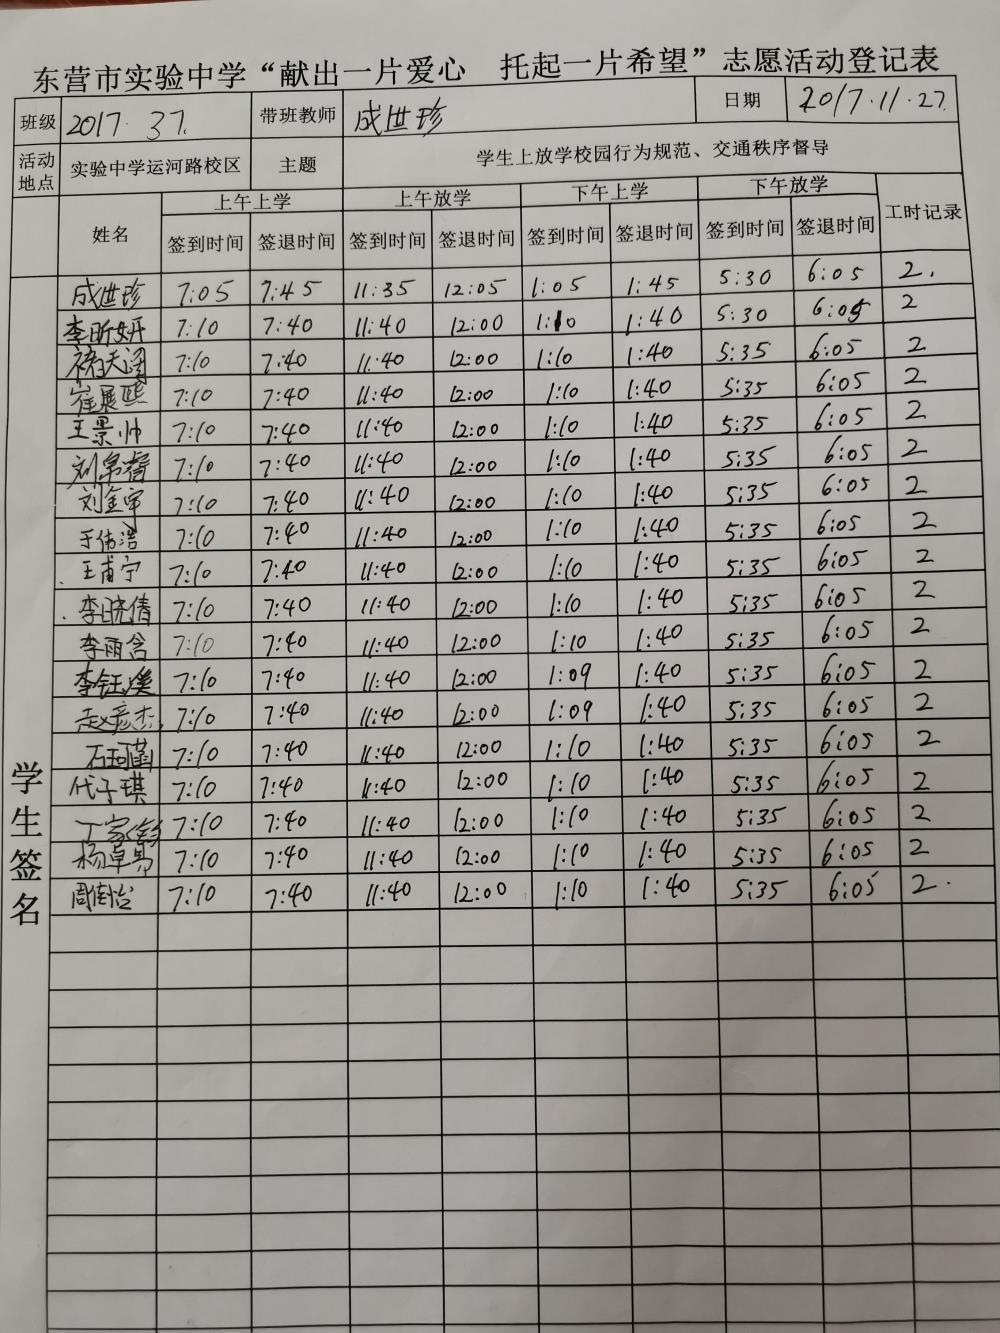 东营市实验中学“献出一片爱心 托起一片希望”志愿活动登记表
班级 2017.37. 带班教师 成世珍 日期 2017.11.27.
活动地点 实验中学运河路校区 主题 学生上放学校园行为规范、交通秩序督导
姓名 上午上学 上午放学 下午上学 下午放学 工时记录
签到时间 签退时间 签到时间 签退时间 签到时间 签退时间 签到时间 签退时间
学生签名
成世珍 7:05 7:45 11:35 12:05 1:05 1:45 5:30 6:05 2.
李昕妍 7:10 7:40 11:40 12:00 1:10 1:40 5:30 6:05 2
天阔 7:10 7:40 11:40 12:00 1:10 1:40 5:35 6:05 2
崔展熙 7:10 7:40 11:40 12:00 1:10 1:40 5:35 6:05 2
王景帅 7:10 7:40 11:40 12:00 1:10 1:40 5:35 6:05 2
刘 7:10 7:40 11:40 12:00 1:10 1:40 5:35 6:05 2
刘金 7:10 7:40 11:40 12:00 1:10 1:40 5:35 6:05 2
于伟浩 7:10 7:40 11:40 12:00 1:10 1:40 5:35 6:05 2
王甫宁 7:10 7:40 11:40 12:00 1:10 1:40 5:35 6:05 2
李晓倩 7:10 7:40 11:40 12:00 1:10 1:40 5:35 6:05 2
李雨含 7:10 7:40 11:40 12:00 1:10 1:40 5:35 6:05 2
李钰溪 7:10 7:40 11:40 12:00 1:09 1:40 5:35 6:05 2
赵彦杰 7:10 7:40 11:40 12:00 1:09 1:40 5:35 6:05 2
石珂菡 7:10 7:40 11:40 12:00 1:10 1:40 5:35 6:05 2
代子琪 7:10 7:40 11:40 12:00 1:10 1:40 5:35 6:05 2
丁家 7:10 7:40 11:40 12:00 1:10 1:40 5:35 6:05 2
杨卓易 7:10 7:40 11:40 12:00 1:10 1:40 5:35 6:05 2
周佳怡 7:10 7:40 11:40 12:00 1:10 1:40 5:35 6:05 2.